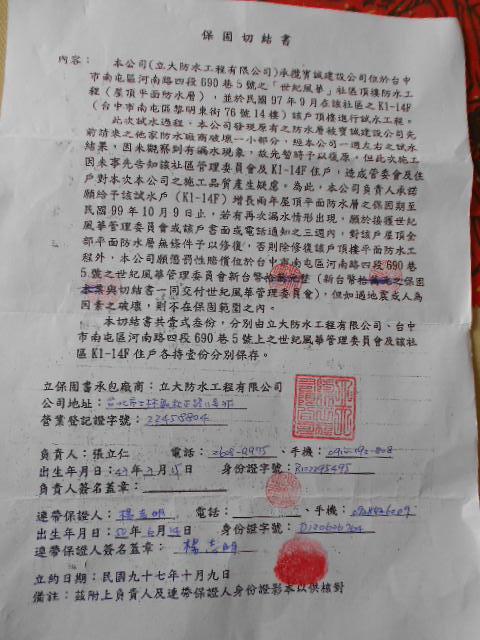 保固切結書
內容：　本公司(立大防水工程有限公司)承攬寶誠建設公司位於台中
市南屯區河南路四段690巷5號之「世紀風華」社區頂樓防水工
程（屋頂平面防水層），並於民國97年9月在該社區之K1-14F
(台中市南屯區黎明東街76號14樓)該戶頂樓進行試水工程。
此次試水過程，本公司發現原有之防水層被寶誠建設公司先
前請來之他家防水廠商破壞一小部分，經本公司一週左右之試水
結果，因未觀察到有漏水現象，故先暫時予以復原。但此次施工
因未事先告知該社區管理委員會及K1-14F住戶，造成管委會及住
戶對本次本公司之施工品質產生疑慮。為此，本公司負責人承諾
願給予該試水戶(K1-14F)增長兩年屋頂平面防水層之保固期至
民國99年10月9日止，若有再次漏水情形出現，願於接獲世紀
風華管委會或該戶書面或電話通知之三週內，對該戶屋頂全
部平面防水層無條件予以修復，否則除修復該戶頂樓平面防水
工程外，本公司願懲罰性賠償位於台中市南屯區河南路四段690巷
5號之世紀風華管理委員會新台幣拾萬元整（新台幣拾萬元之保固
本票與切結書一同交付世紀風華管理委員會），但如遇地震或人為
因素之破壞，則不在保固範圍之內。
本切結書共壹式叁份，分別由立大防水工程有限公司、台中
市南屯區河南路四段690巷5號上之世紀風華管理委員會及該社
區K1-14F住戶各持壹份分別保存。
立保固書承包廠商：立大防水工程有限公司
公司地址：
營業登記證字號：23458804
負責人：張立仁　電話：　、手機：
出生年月日：　年　月　日　身份證字號：
負責人簽名蓋章：
連帶保證人：楊志明　電話：　、手機：
出生年月日：　年　月　日　身份證字號：
連帶保證人簽名蓋章：楊志明
立約日期：民國九十七年十月九日
備註：茲附上負責人及連帶保證人身份證影本以供核對